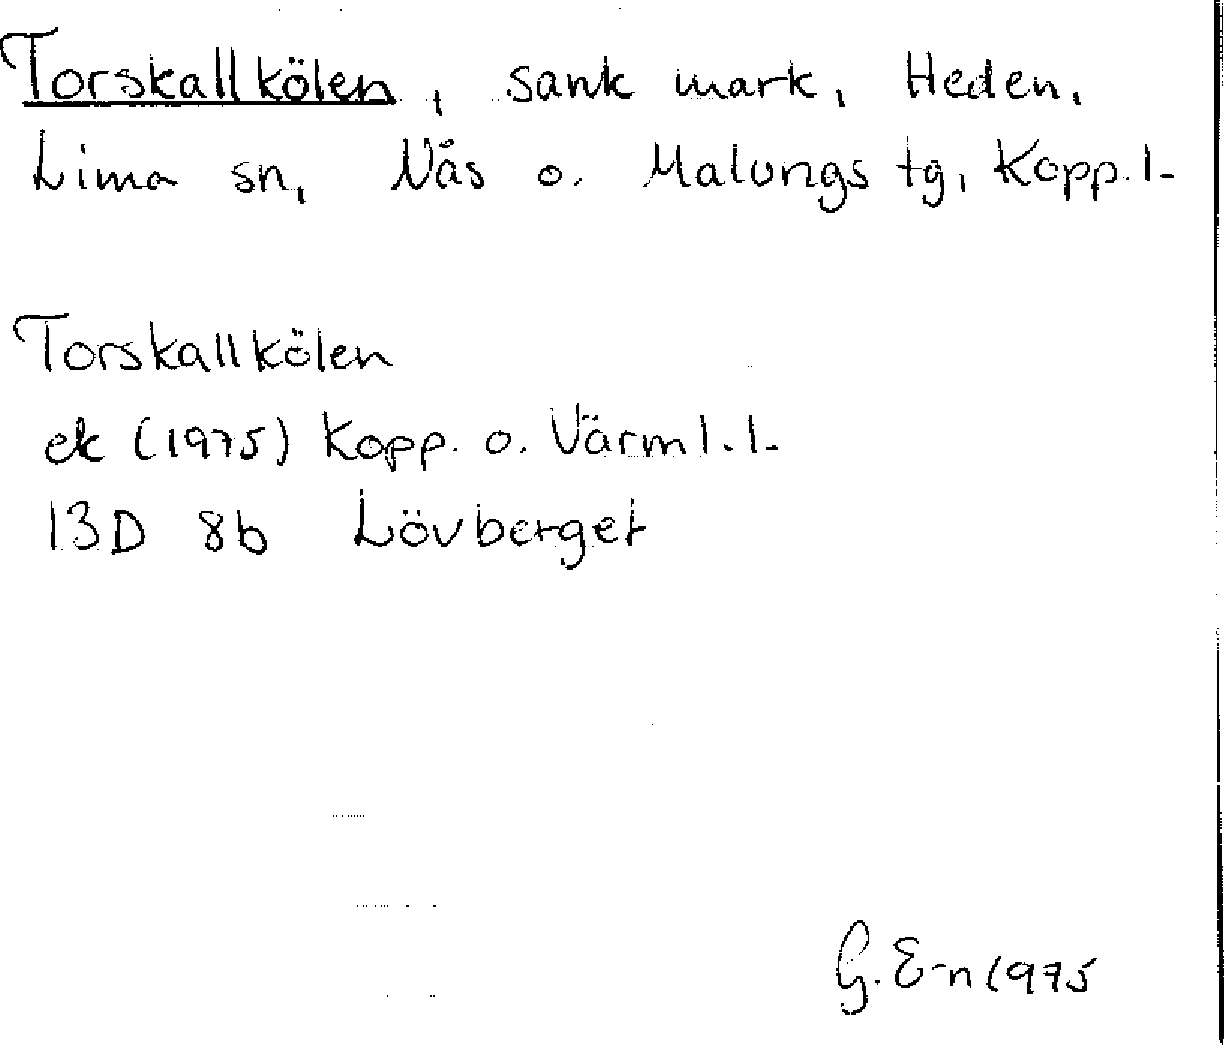 Torskallkölen, sank mark, Heden,
Lima sn, Nås o. Malungs tg, Kopp. l.
Torskallkölen
ek (1975) Kopp. o. Värml. l.
13D 8b Lövberget
G. E-n 1975